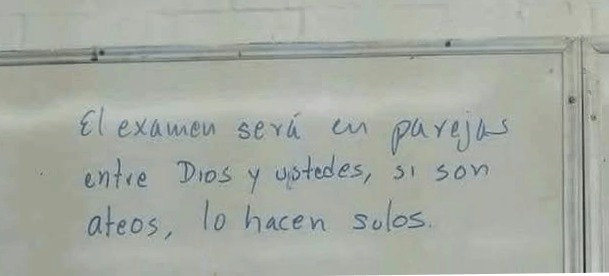 El examen será en parejas
entre Dios y ustedes, si son
ateos, lo hacen solos.